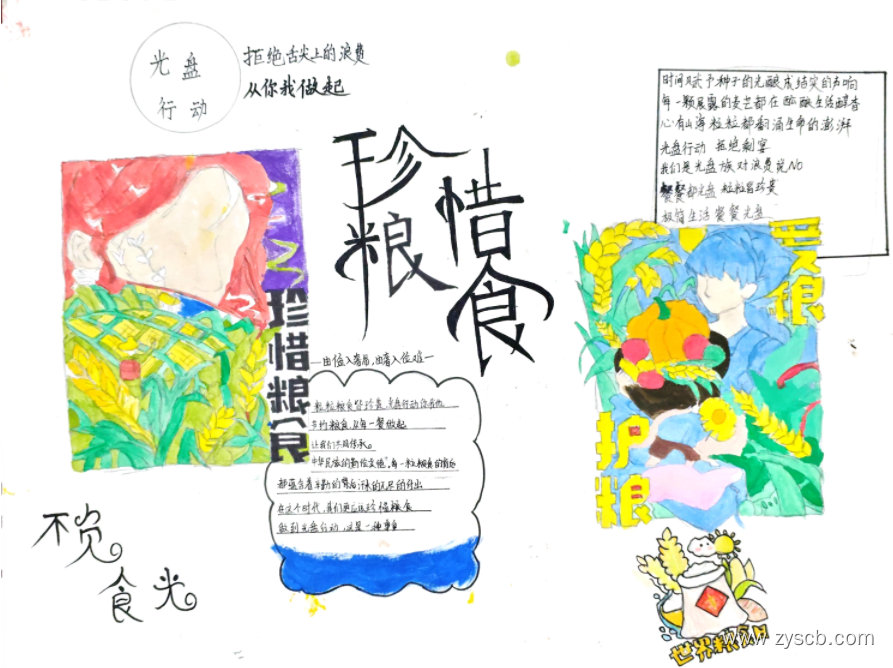 光盘
行动
拒绝舌尖上的浪费
从你我做起
珍惜
粮食
时间赋予种子的光酿成结实的声响
每一颗晨露的麦芒都在酝酿生活醇香
心有山海粒粒都翻涌生命的澎湃
光盘行动 拒绝剩宴
我们是光盘族对浪费说NO
餐餐都光盘 粒粒皆珍贵
极简生活餐餐光盘
珍惜粮食
爱粮
护粮
由俭入奢易,由奢入俭难
粒粒粮食皆珍贵,光盘行动你我他
节约粮食,从每一餐做起
让我们共同传承
中华民族的勤俭美德,每一粒粮食的背后
都蕴含着辛勤的
在这个时代,我们更应该珍惜粮食
做到光盘行动,这是一种
不负
食光
世界粮食日
www.zyscb.com